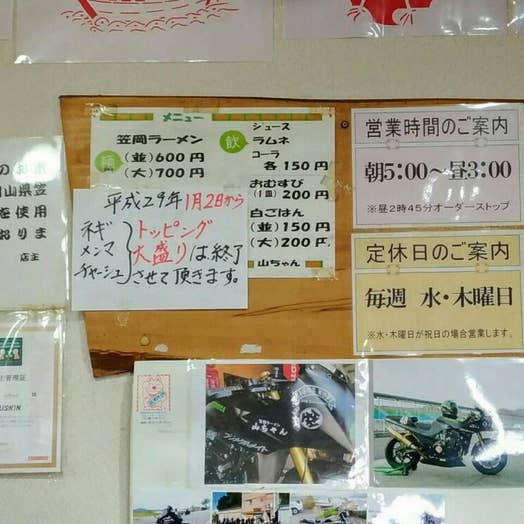 メニュー
麺
笠岡ラーメン
(並)600円
(大)700円
飲
ジュース
ラムネ
コーラ
各150円
おむすび
(1皿)200円
白ごはん
(並)150円
(大)200円
山ちゃん
平成29年1月2日から
ネギ
メンマ
チャーシュー
トッピング
大盛りは終了
させて頂きます。
営業時間のご案内
朝5:00〜昼3:00
※昼2時45分オーダーストップ
定休日のご案内
毎週 水・木曜日
※水・木曜日が祝日の場合営業します。
山県笠
を使用
おりま
店主
山ちゃん